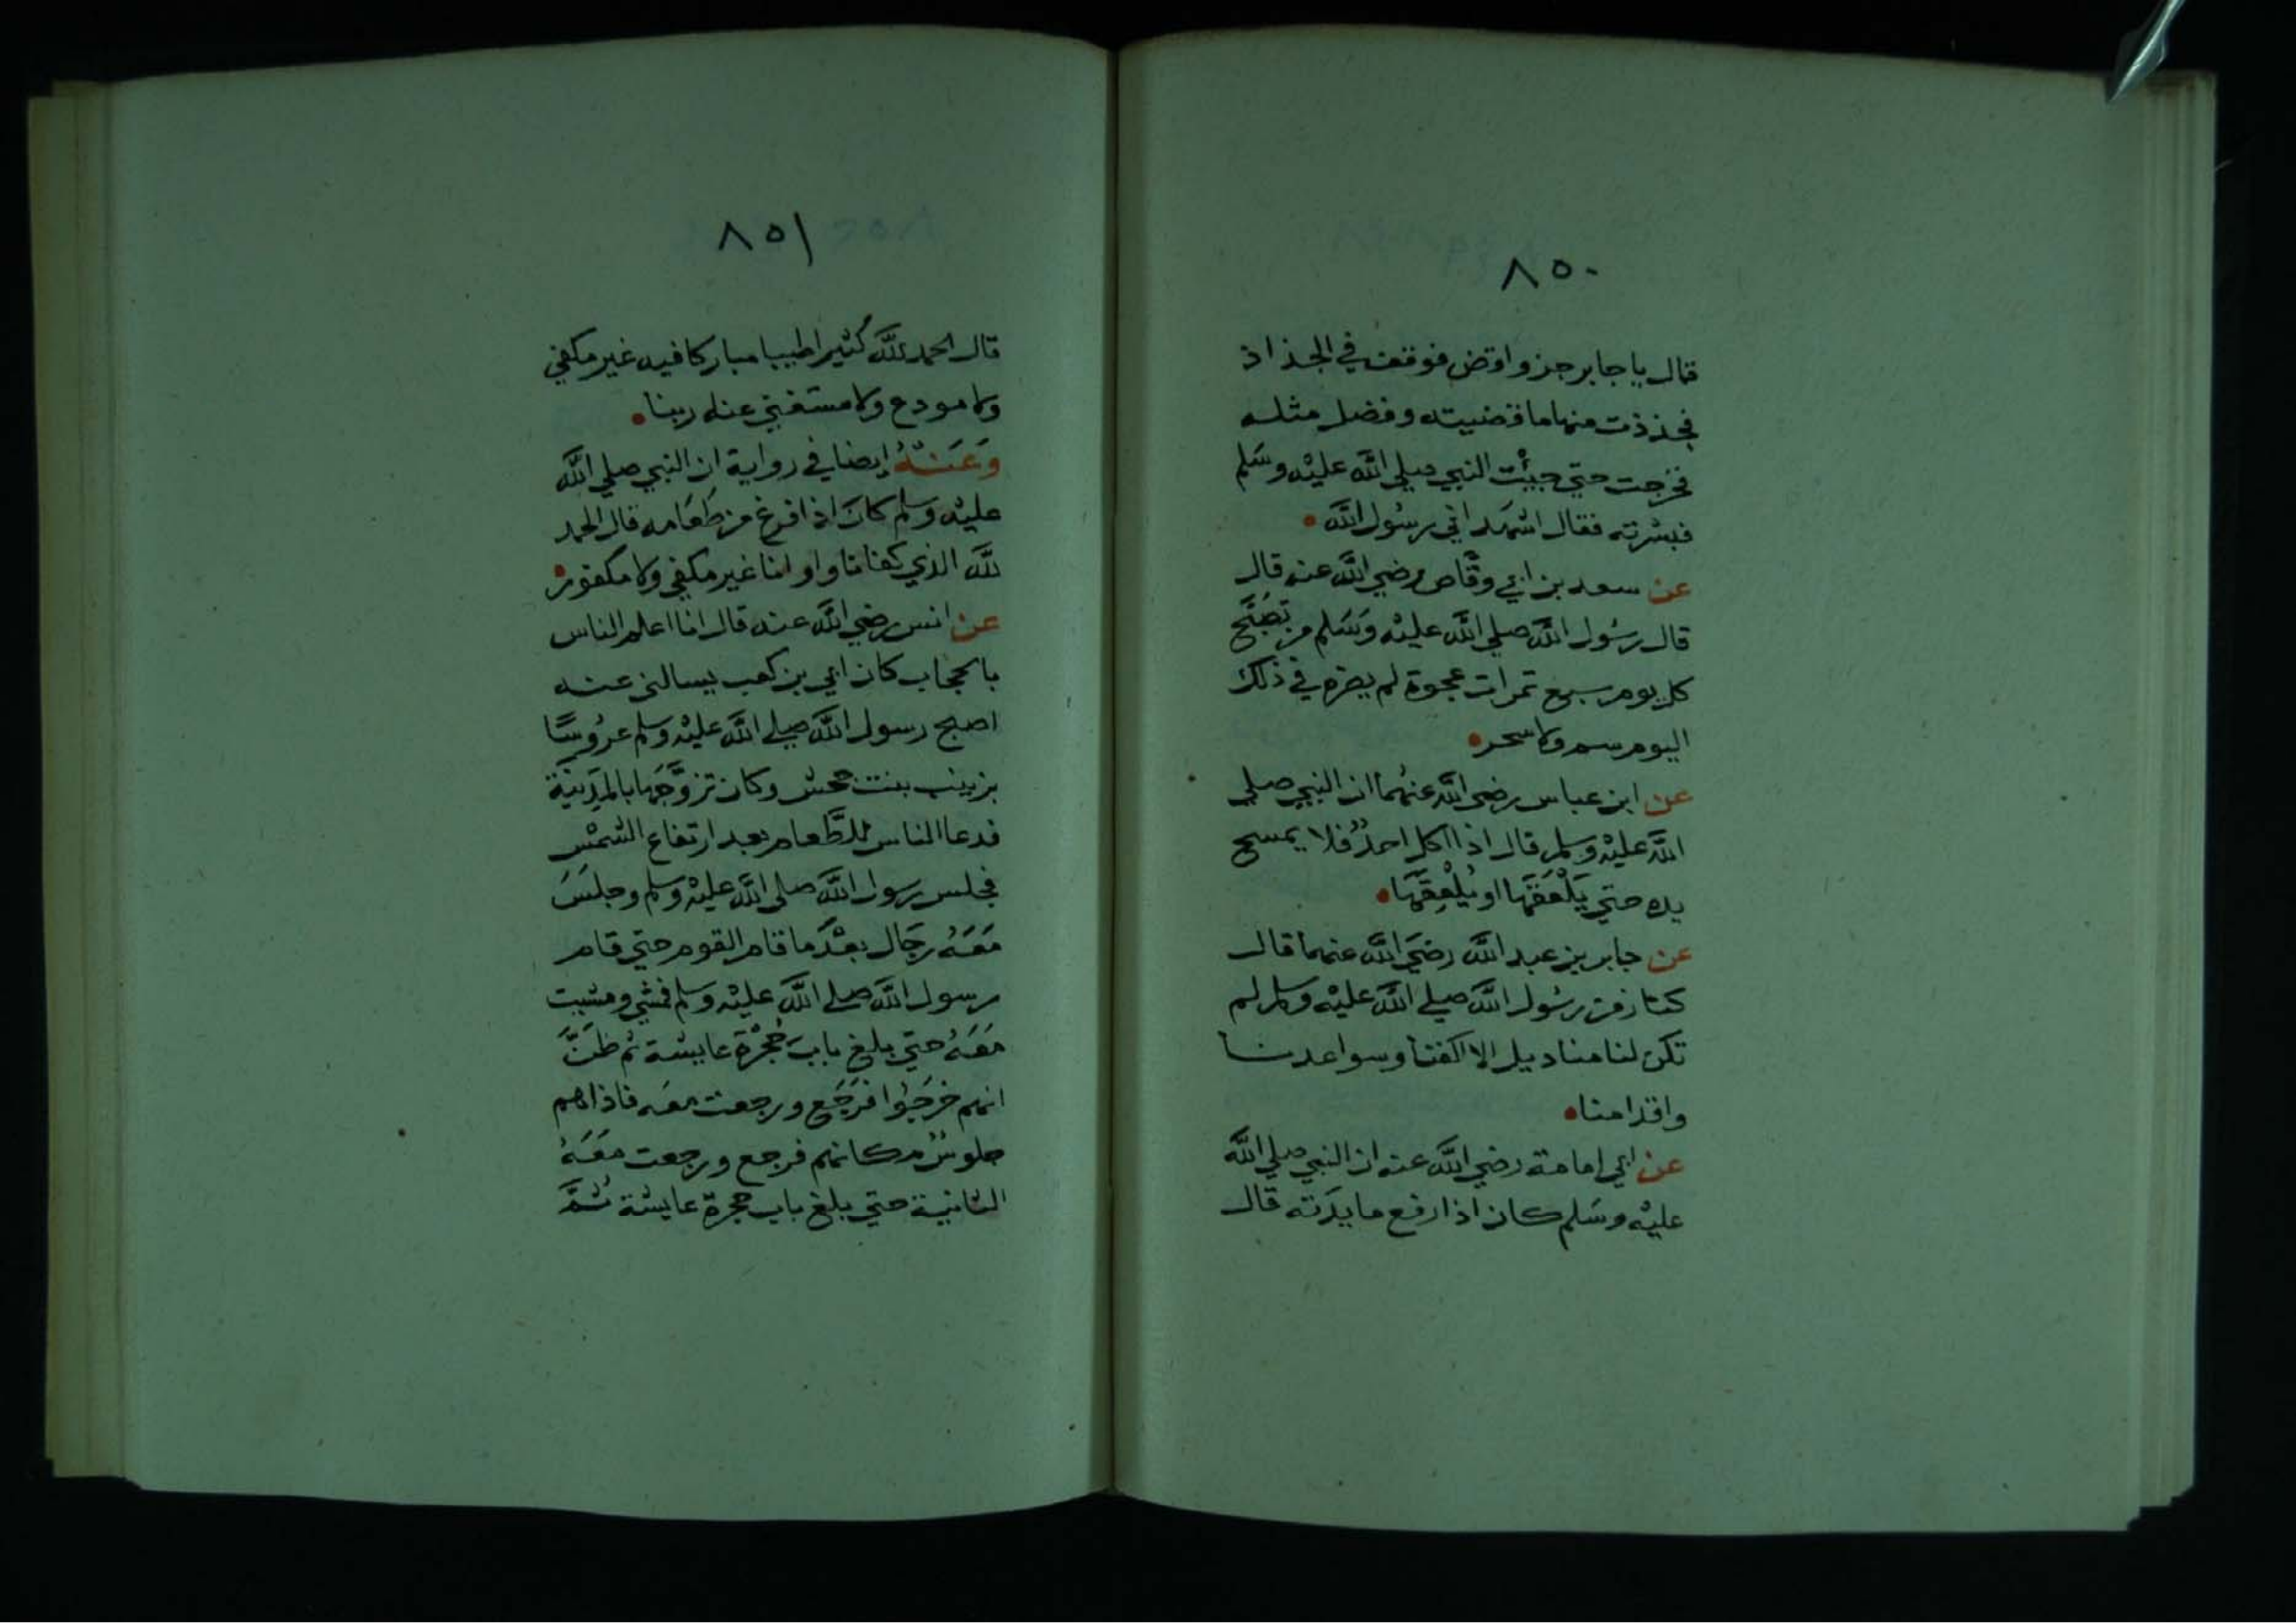 ٨٥٠
قال يا جابر جز واوقض فوقف في الجذاذ
فجذذت منها ما قضيته وفضل مثله
فخرجت حتي جيأت النبي صلي اللَّه عليْه وسَلم
فبشرته فقال اشهَد اني رسُول اللَّه
عن سعد بن ابي وقَّاص رضي اللَّه عنه قال
قال رسُول اللَّه صلي اللَّه عليْه وَسَلم من تصَبَّح
كل يوم سبع تمرات عجوة لم يضره في ذلك
اليوم سم ولا سحر
عن ابن عباس رضي اللَّه عنهُما ان النبي صلي
اللَّه عليْه وسلم قال اذا اكل احدُ فلا يمسح
يده حتي يَلْعَقَهَا او يُلْعِقَهَا
عن جابر بن عبد اللَّه رضيَ اللَّه عنهما قال
كنا زمن رسُول اللَّه صلي اللَّه عليْه وسلم لم
تكن لنا مناديل الا اكفنا وسواعدنا
واقدامنا
عن ابي امامة رضي اللَّه عنه ان النبي صلي اللَّه
عليْه وسَلم كان اذا رفع مايدَته قال
٨٥١
قال الحمد للَّه كثيرا طيبا مباركا فيه غير مكفي
ولا مودع ولا مستغني عنه ربنا
وَعَنْهُ ايضا في رواية ان النبي صلي اللَّه
عليْه وسلم كانَ اذا فرغ من طَعَامه قال الحمد
للَّه الذي كفانا واوانا غير مكفي ولا مكفور
عن انس رضي اللَّه عنه قال انا اعلم الناس
بالحجاب كان ابي بن كعب يسالني عنه
اصبح رسول اللَّه صلي اللَّه عليْه وسلم عرُوسًا
بزينب بنت جحش وكان تزوَّجَهَا بالمَدِينَة
فدعا الناس للطَّعام بعد ارتفاع الشمْس
فجلس رسول اللَّه صلي اللَّه عليْه وسلم وجلسَ
مَعَهُ رجَال بعْدَما قام القوم حتي قام
رسول اللَّه صلي اللَّه عليْه وسلم فمشي ومشيت
مَعَهُ حتي بلغ بابَ حُجْرَة عايشة ثم ظَنَّ
انهم خرَجُوا فرَجَع ورجعت معَه فاذا هم
جلوسٌ مكانهم فرجع ورجعت مَعَهُ
الثانية حتي بلغ باب حجرة عايشة ثُمَّ